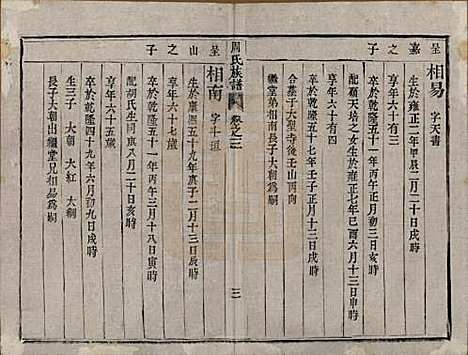 呈嘉之子
相易 字天書
生於雍正二年甲辰二月二十日戌時
卒於乾隆五十一年丙午六月初三日亥時
享年六十有三
配碩天培之女生於雍正七年己酉六月十三日申時
卒於乾隆五十七年壬子正月十三日戌時
享年六十有四
合墓子大聖寺後壬山丙向
繼堂弟相南長子大朝為嗣
周氏族譜 卷之二
三
呈山之子
相南 字斗垣
生於康熙五十九年庚子二月十三日辰時
卒於乾隆五十一年丙午三月十八日寅時
享年六十七歲
配胡氏生同寅八月二十日亥時
卒於乾隆四十九年六月初九日戌時
享年六十五歲
生三子 大朝 大紅 大
長子大朝出繼堂兄相易為嗣